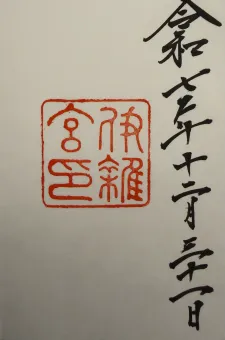 令和七年十二月三十一日
伊雜
宮印